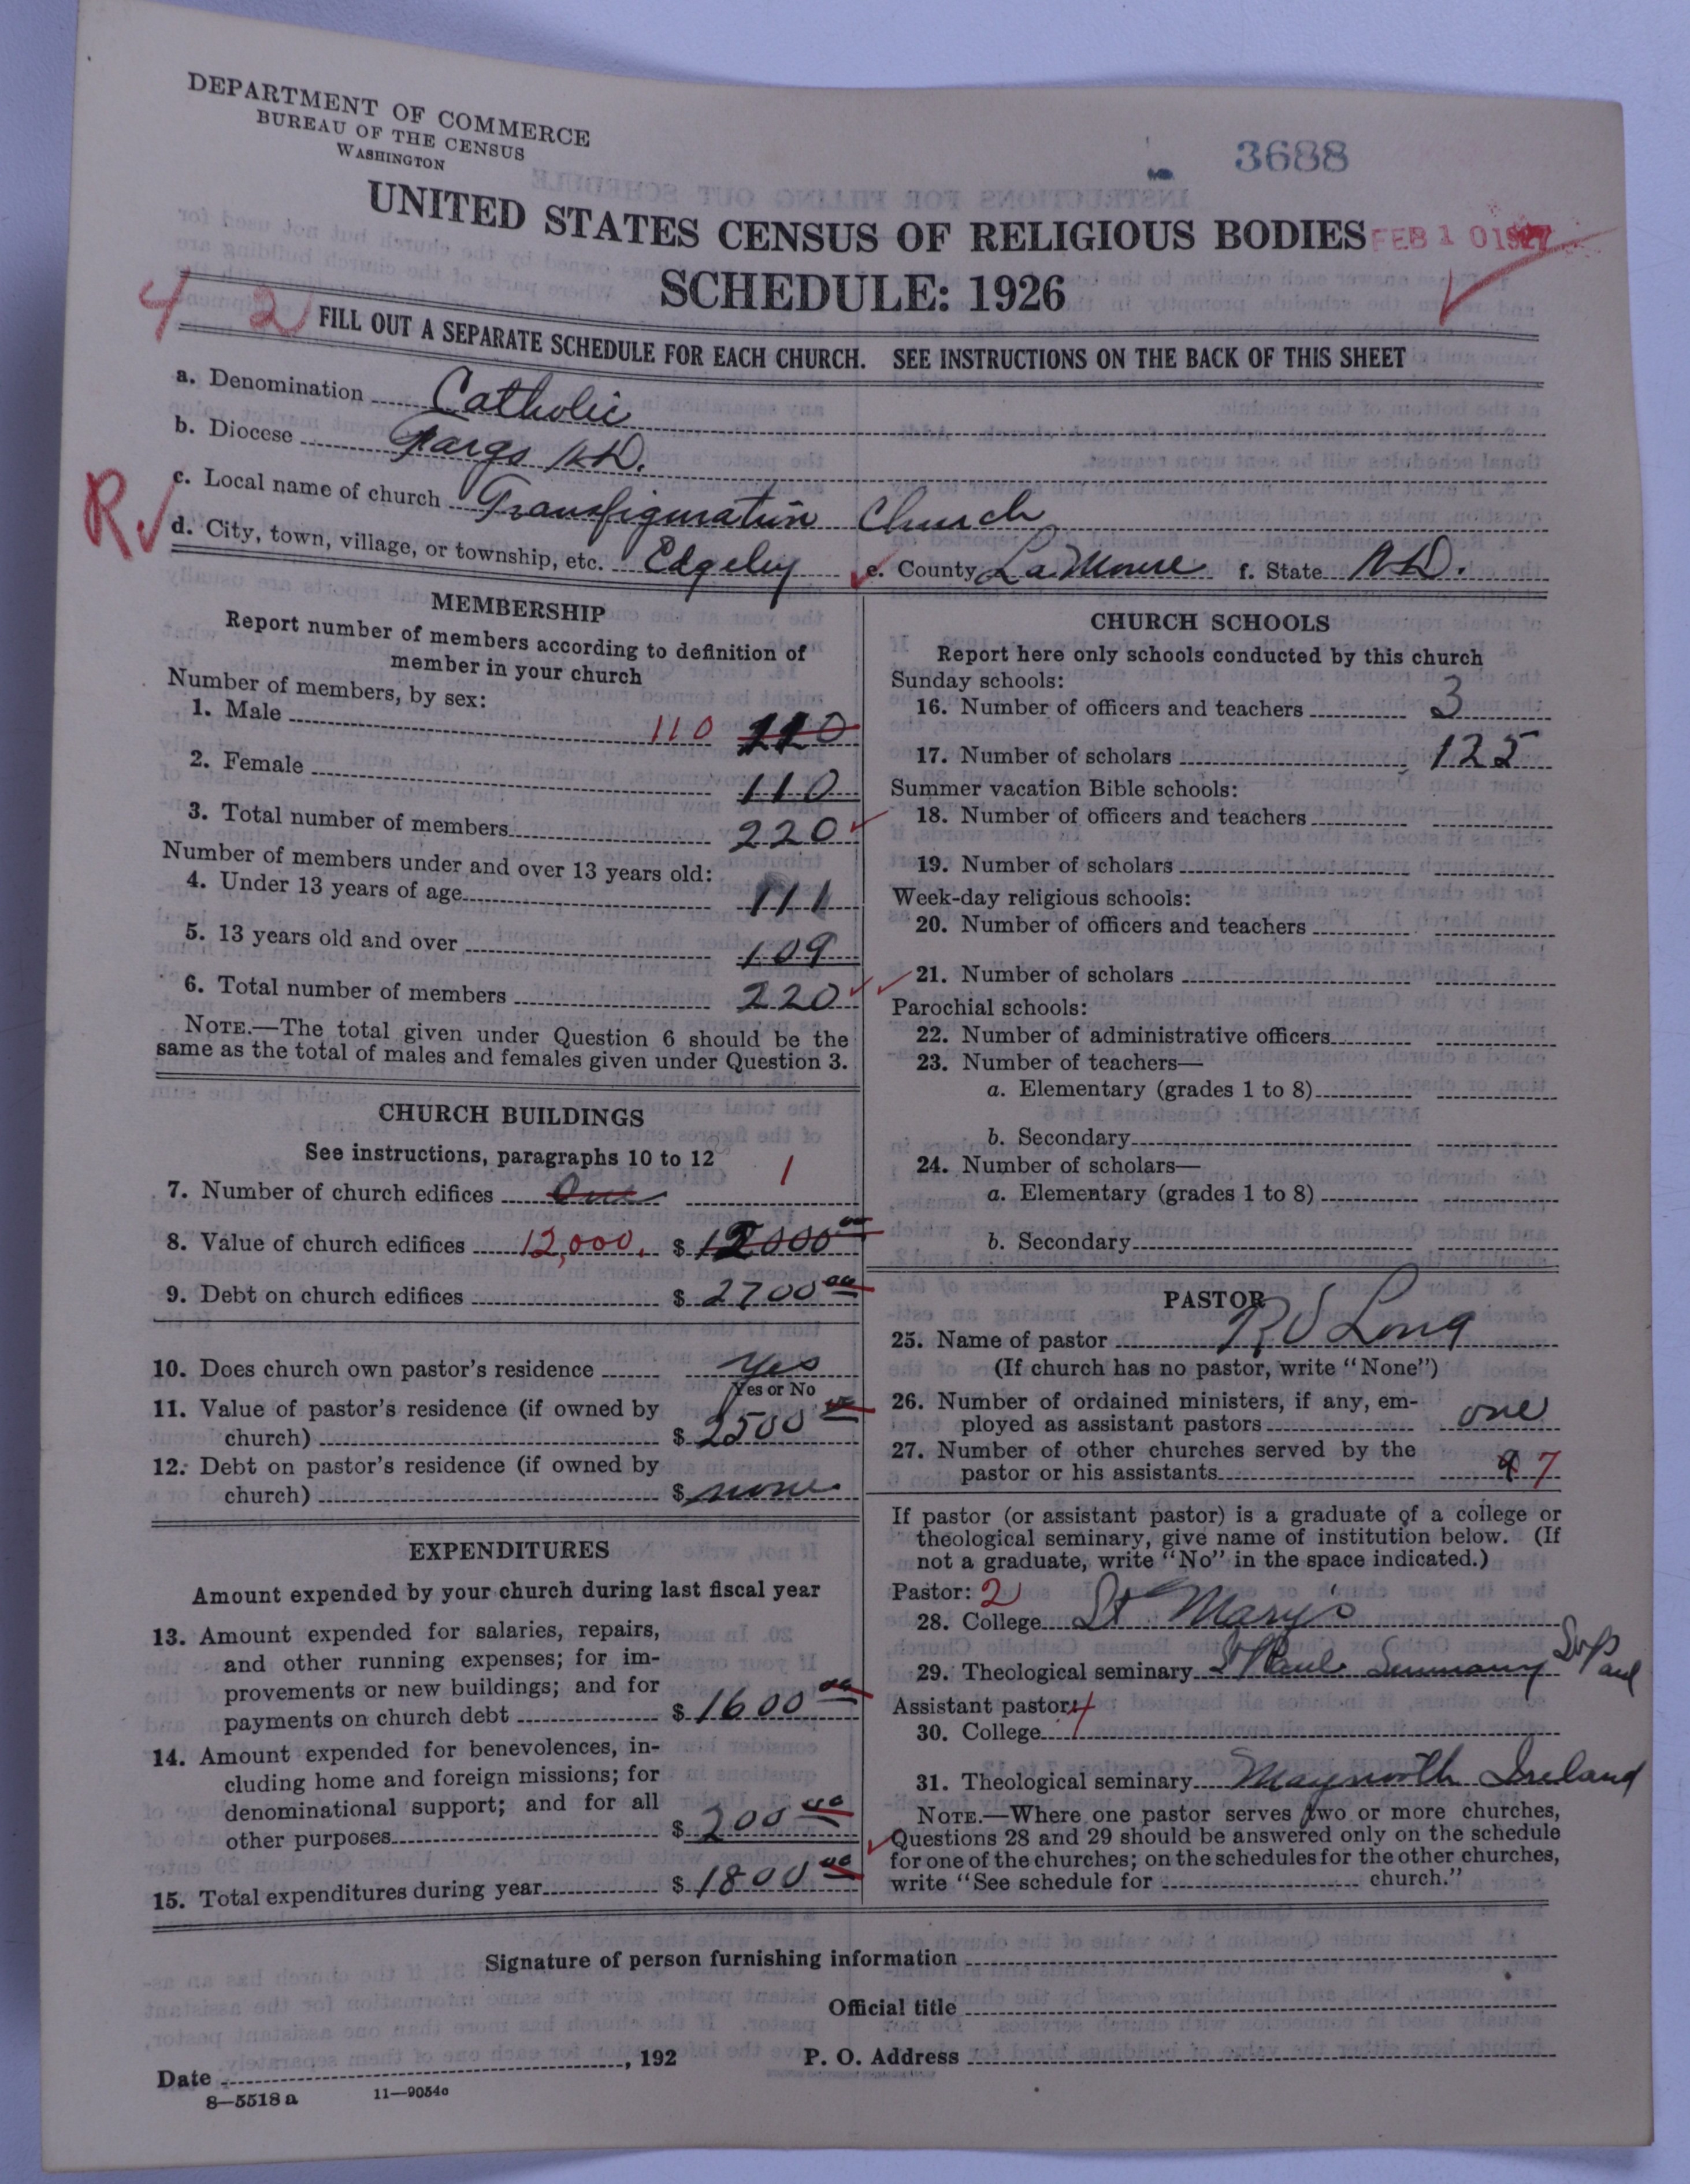 DEPARTMENT OF COMMERCE
BUREAU OF THE CENSUS
WASHINGTON
3688
UNITED STATES CENSUS OF RELIGIOUS BODIES
FEB 10 1927
SCHEDULE: 1926
4 2
FILL OUT A SEPARATE SCHEDULE FOR EACH CHURCH. SEE INSTRUCTIONS ON THE BACK OF THIS SHEET
a. Denomination Catholic
b. Diocese Fargo N.D.
R
c. Local name of church Transfiguration Church
d. City, town, village, or township, etc. Edgeley e. County La Moure f. State N.D.
MEMBERSHIP
Report number of members according to definition of
member in your church
Number of members, by sex:
1. Male 110 110
2. Female 110
3. Total number of members 220
Number of members under and over 13 years old:
4. Under 13 years of age 111
5. 13 years old and over 109
6. Total number of members 220
NOTE.—The total given under Question 6 should be the
same as the total of males and females given under Question 3.
CHURCH BUILDINGS
See instructions, paragraphs 10 to 12
7. Number of church edifices One 1
8. Value of church edifices 12,000. $ 12000 00
9. Debt on church edifices $ 2700 00
10. Does church own pastor's residence yes
Yes or No
11. Value of pastor's residence (if owned by
church) $ 2500 00
12. Debt on pastor's residence (if owned by
church) $ none
EXPENDITURES
Amount expended by your church during last fiscal year
13. Amount expended for salaries, repairs,
and other running expenses; for im-
provements or new buildings; and for
payments on church debt $ 1600 00
14. Amount expended for benevolences, in-
cluding home and foreign missions; for
denominational support; and for all
other purposes $ 200 00
15. Total expenditures during year $ 1800 00
CHURCH SCHOOLS
Report here only schools conducted by this church
Sunday schools:
16. Number of officers and teachers 3
17. Number of scholars 125
Summer vacation Bible schools:
18. Number of officers and teachers
19. Number of scholars
Week-day religious schools:
20. Number of officers and teachers
21. Number of scholars
Parochial schools:
22. Number of administrative officers
23. Number of teachers—
a. Elementary (grades 1 to 8)
b. Secondary
24. Number of scholars—
a. Elementary (grades 1 to 8)
b. Secondary
PASTOR
25. Name of pastor Long
(If church has no pastor, write "None")
26. Number of ordained ministers, if any, em-
ployed as assistant pastors one
27. Number of other churches served by the
pastor or his assistants 7
If pastor (or assistant pastor) is a graduate of a college or
theological seminary, give name of institution below. (If
not a graduate, write "No" in the space indicated.)
Pastor: 2
28. College St Mary's
29. Theological seminary St Paul Seminary St Paul
Assistant pastor: 4
30. College
31. Theological seminary Maynooth Ireland
NOTE.—Where one pastor serves two or more churches,
Questions 28 and 29 should be answered only on the schedule
for one of the churches; on the schedules for the other churches,
write "See schedule for church."
Signature of person furnishing information
Official title
Date , 192 P. O. Address
8—5518 a 11—9054c